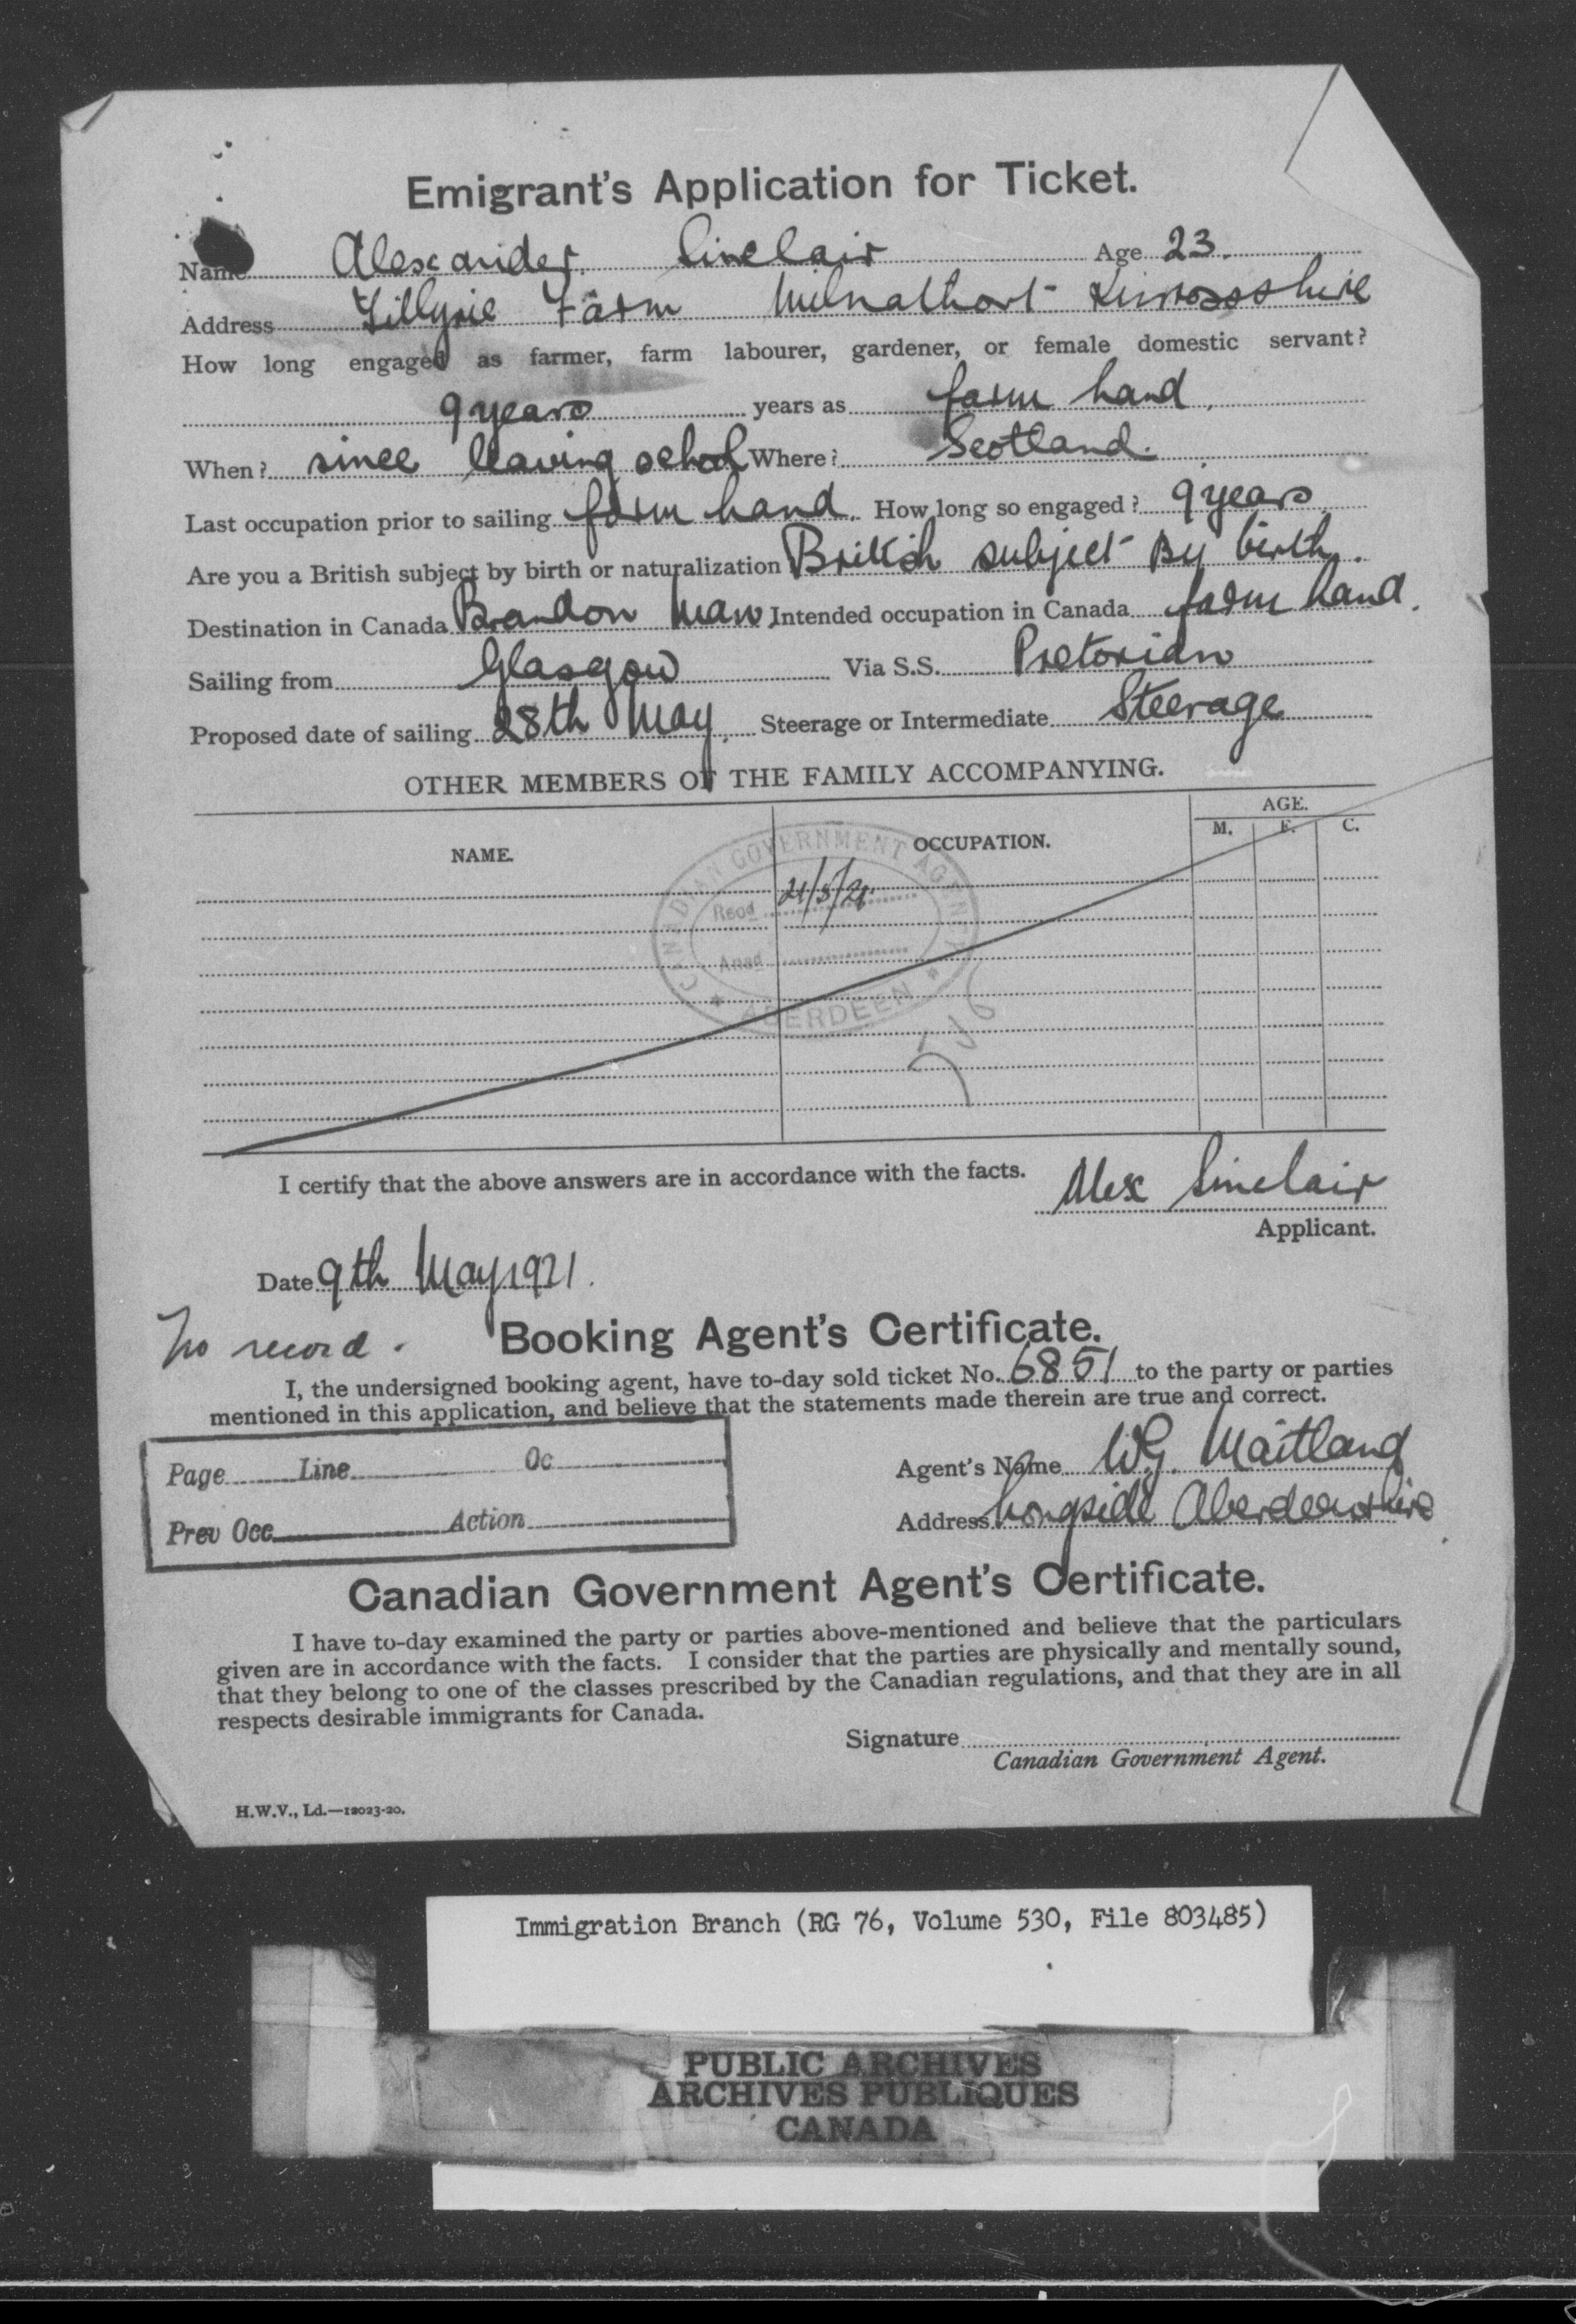 Emigrant's Application for Ticket.
Name Alexander Sinclair Age 23.
Address Tillyrie Farm Milnathort Kinrossshire
How long engaged as farmer, farm labourer, gardener, or female domestic servant?
9 years years as farm hand.
When? since leaving school Where? Scotland.
Last occupation prior to sailing farm hand. How long so engaged? 9 years
Are you a British subject by birth or naturalization British subject By birth.
Destination in Canada Brandon Man Intended occupation in Canada farm hand.
Sailing from Glasgow Via S.S. Pretorian
Proposed date of sailing 28th May. Steerage or Intermediate Steerage
OTHER MEMBERS OF THE FAMILY ACCOMPANYING.
NAME. OCCUPATION. AGE.
M. F. C.
CANADIAN GOVERNMENT AGENT
Recd 21/5/21
Ansd
ABERDEEN
I certify that the above answers are in accordance with the facts. Alex Sinclair
Applicant.
Date 9th May 1921.
No record. Booking Agent's Certificate.
I, the undersigned booking agent, have to-day sold ticket No. 6851 to the party or parties
mentioned in this application, and believe that the statements made therein are true and correct.
Page Line Oc
Prev Occ Action
Agent's Name W.G. Maitland
Address Longside Aberdeenshire
Canadian Government Agent's Certificate.
I have to-day examined the party or parties above-mentioned and believe that the particulars
given are in accordance with the facts. I consider that the parties are physically and mentally sound,
that they belong to one of the classes prescribed by the Canadian regulations, and that they are in all
respects desirable immigrants for Canada.
Signature
Canadian Government Agent.
H.W.V., Ld.—12023-20.
Immigration Branch (RG 76, Volume 530, File 803485)
PUBLIC ARCHIVES
ARCHIVES PUBLIQUES
CANADA